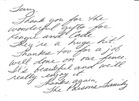 Larry,
Thank you for the
wonderful gifts for
and Carle.
They're a huge hit!
Thanks too for a job
well done on our fence.
It's beautiful and we
really enjoy it.
Thanks again,
The Family